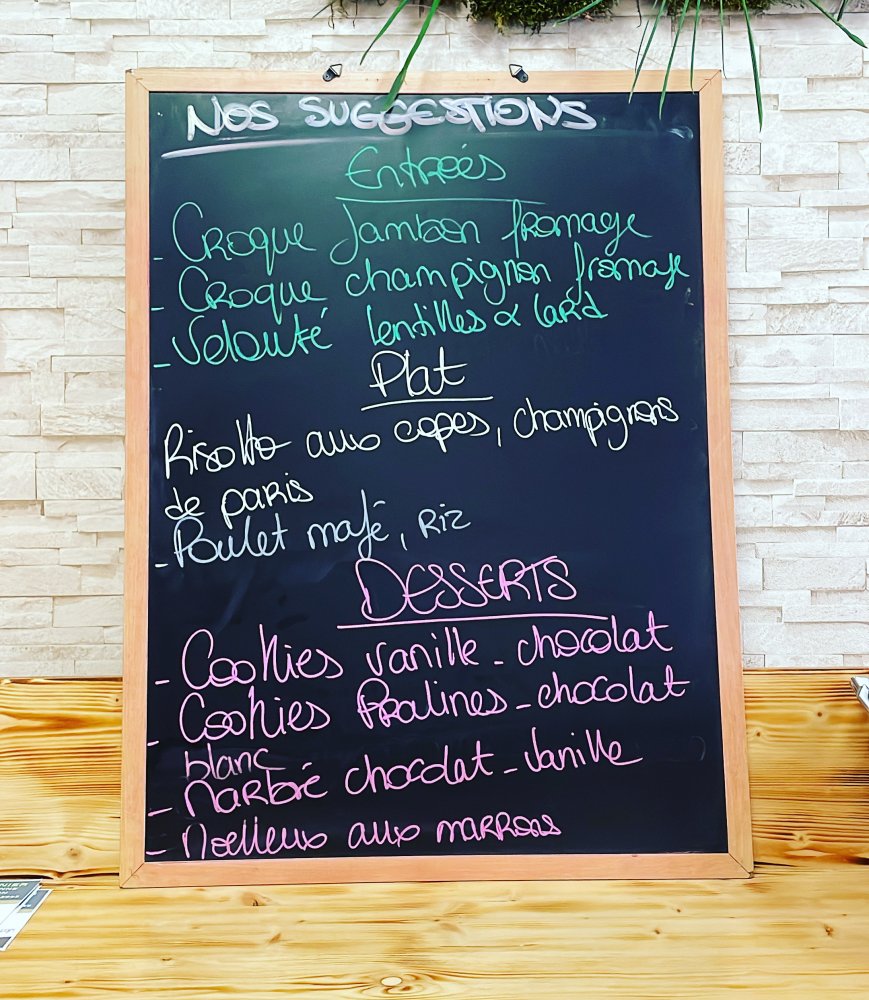 NOS SUGGESTIONS
Entrées
- Croque Jambon fromage
- Croque champignon fromage
- Velouté lentilles & lard
Plat
Risotto aux cepes, champignons
de paris
- Poulet mafé, Riz
DESSERTS
- Cookies vanille - chocolat
- Cookies Pralines - chocolat
blanc
- Marbré chocolat - vanille
- Moelleux aux marrons